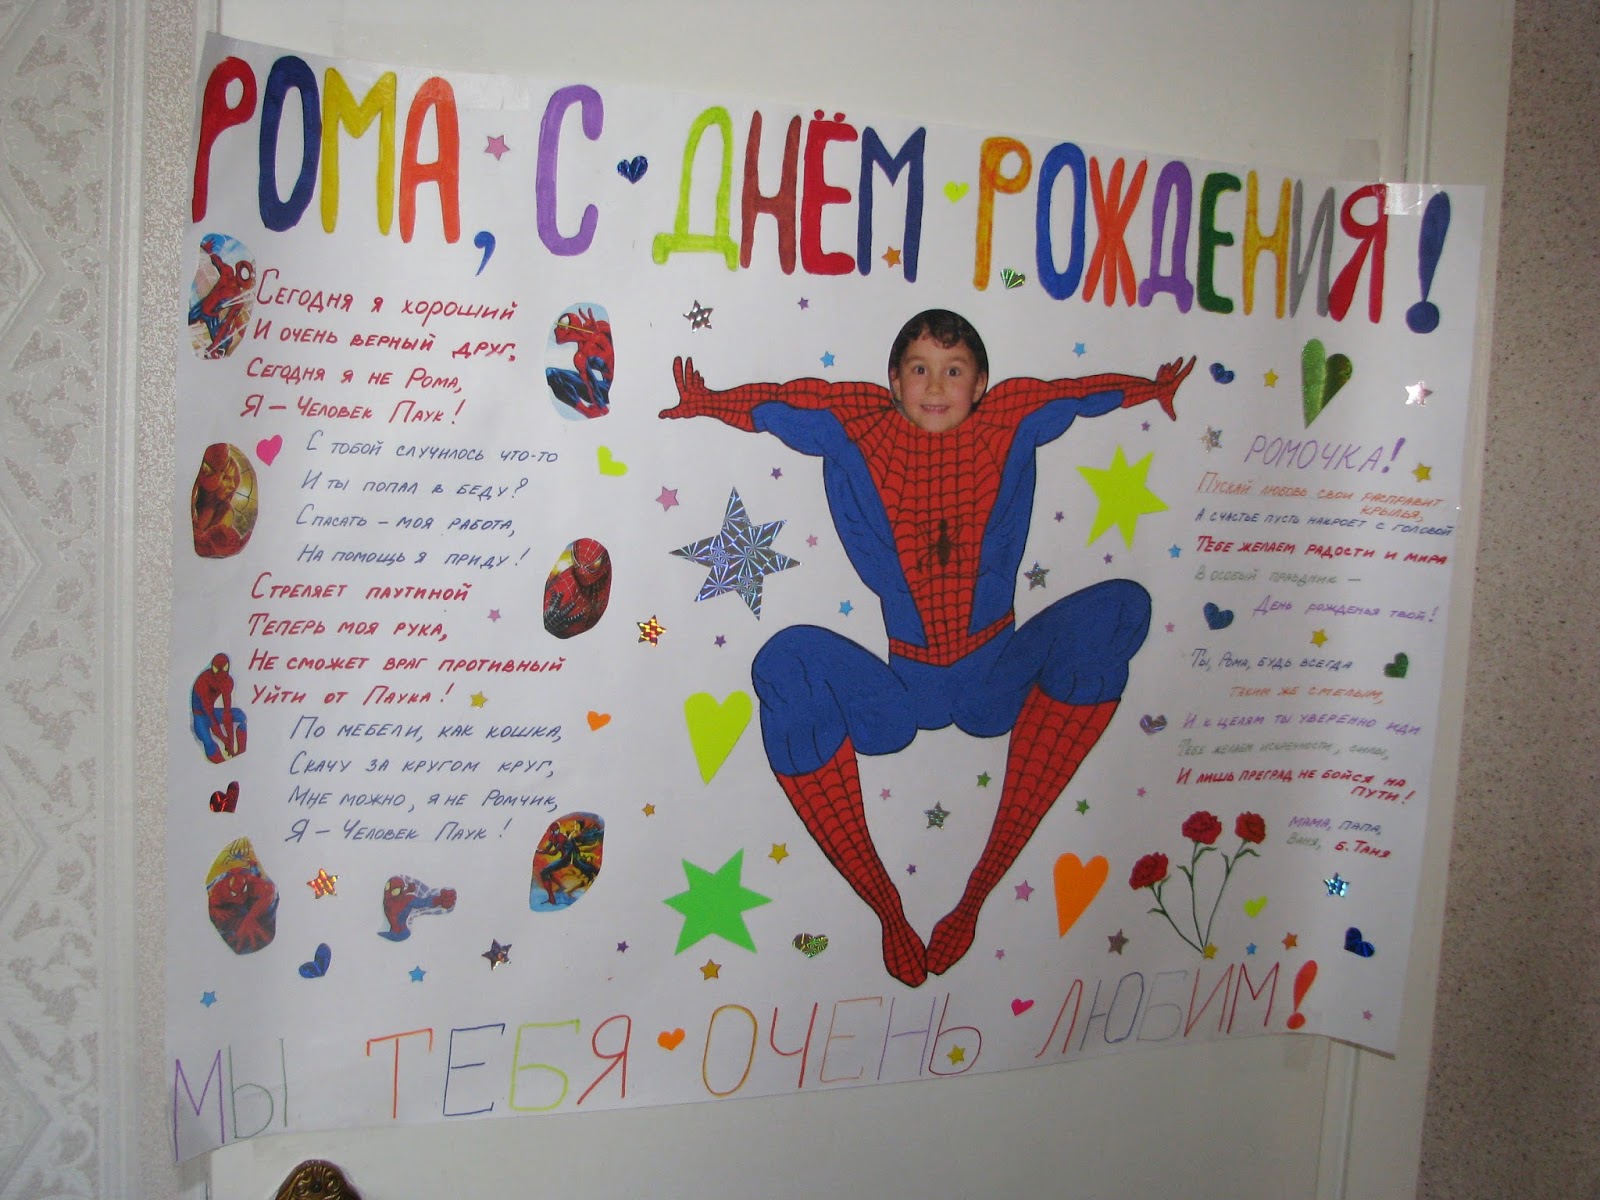 РОМА, С ДНЁМ РОЖДЕНИЯ!
Сегодня я хороший
И очень верный друг,
Сегодня я не Рома,
Я – Человек Паук!
С тобой случилось что-то
И ты попал в беду?
Спасать – моя работа,
На помощь я приду!
Стреляет паутиной
Теперь моя рука,
Не сможет враг противный
Уйти от Паука!
По мебели, как кошка,
Скачу за кругом круг,
Мне можно, я не Ромчик,
Я – Человек Паук!
РОМОЧКА!
Пускай любовь свои расправит
крылья,
А счастье пусть накроет с головой
Тебе желаем радости и мира
В особый праздник –
День рожденья твой!
Ты, Рома, будь всегда
таким же смелым,
И к целям ты уверенно иди
Тебе желаем искренности, силы,
И лишь преград не бойся на
пути!
МАМА, ПАПА,
Ваня, Б. Таня
МЫ ТЕБЯ ОЧЕНЬ ЛЮБИМ!